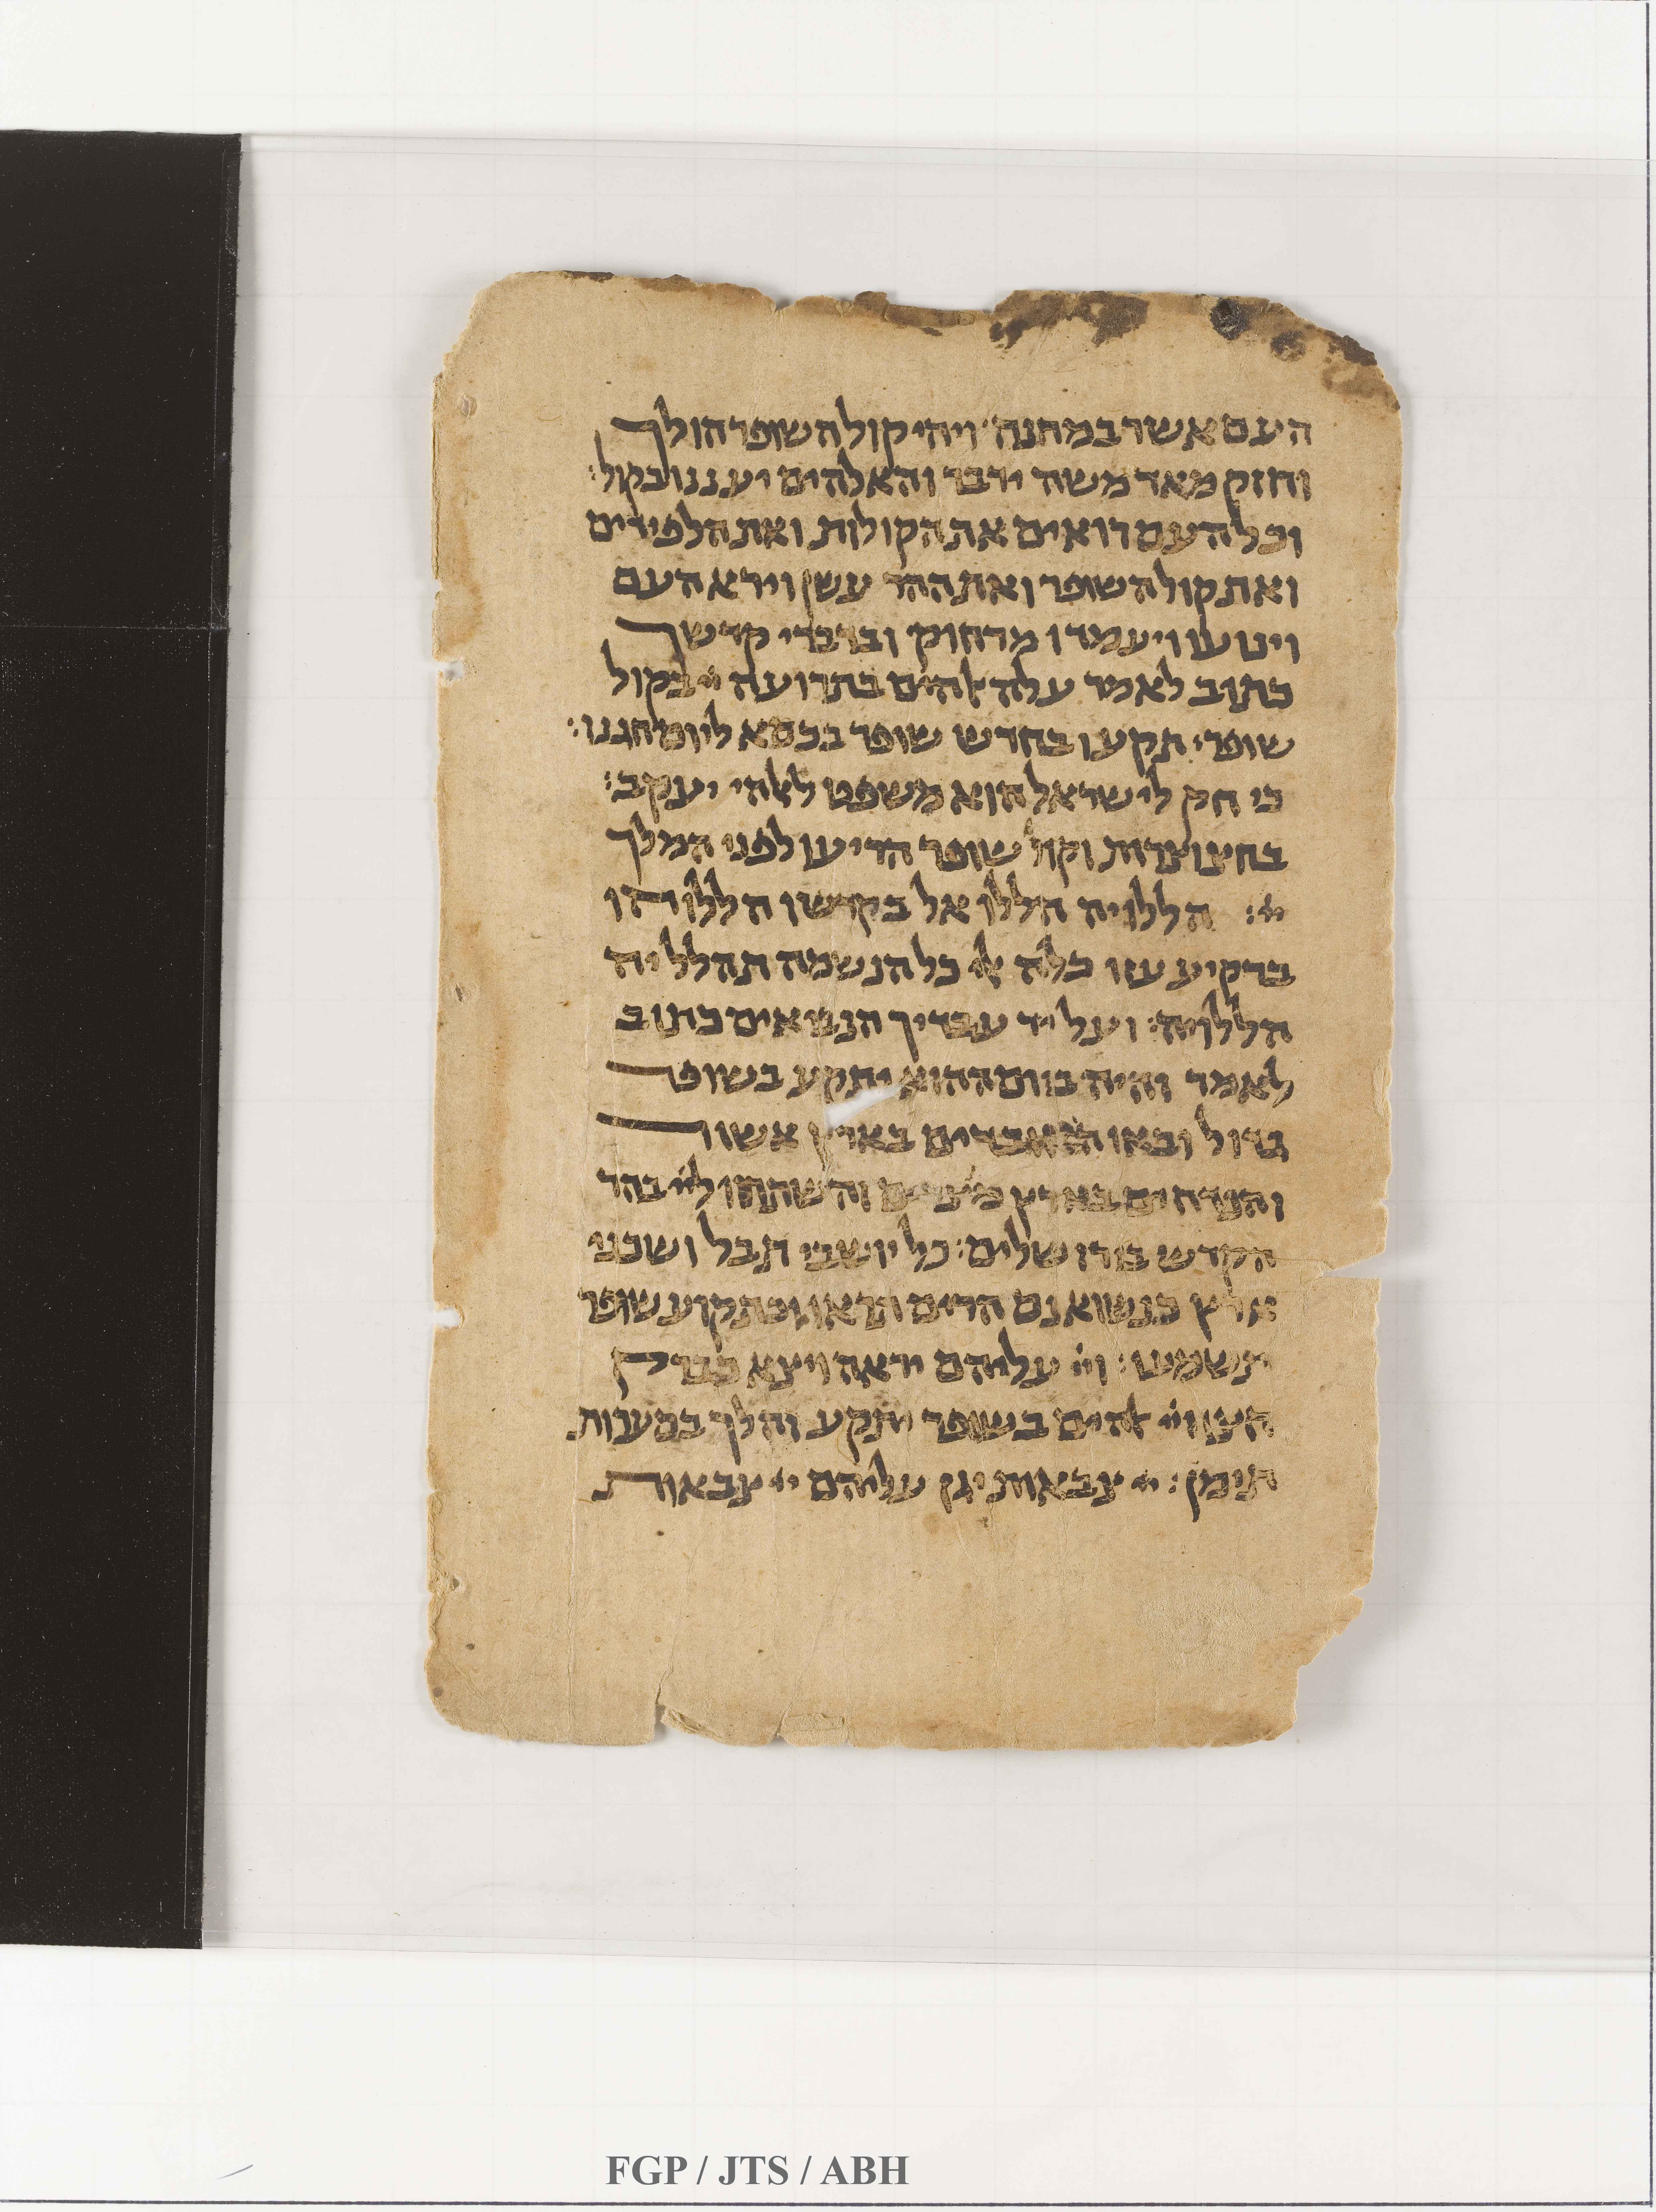 העם אשר במחנה׃ ויהי קול השופר הולך
וחזק מאד משה ידבר והאלהים יעננו בקול׃
וכל העם רואים את הקולות ואת הלפידים
ואת קול השופר ואת ההר עשן וירא העם
וינועו ויעמדו מרחוק ובדברי קדשך
כתוב לאמר עלה אלהים בתרועה ייי בקול
שופר׃ תקעו בחדש שופר בכסא ליום חגנו׃
כי חק לישראל הוא משפט לאלהי יעקב׃
בחצוצרות וקול שופר הריעו לפני המלך
ייי׃ הללויה הללו אל בקדשו הללוהו
ברקיע עזו כלה אל כל הנשמה תהלל יה
הללויה׃ ועל יד עבדיך הנביאים כתוב
לאמר והיה ביום ההוא יתקע בשופר
גדול ובאו האבדים בארץ אשור
והנדחים בארץ מצרים והשתחוו לייי בהר
הקדש בירושלים׃ כל יושבי תבל ושכני
ארץ כנשוא נס הרים תראו וכתקוע שופר
תשמעו׃ וייי עליהם יראה ויצא כברק
חצו וייי אלהים בשופר יתקע והלך בסערות
תימן׃ ייי צבאות יגן עליהם ייי צבאות
FGP / JTS / ABH